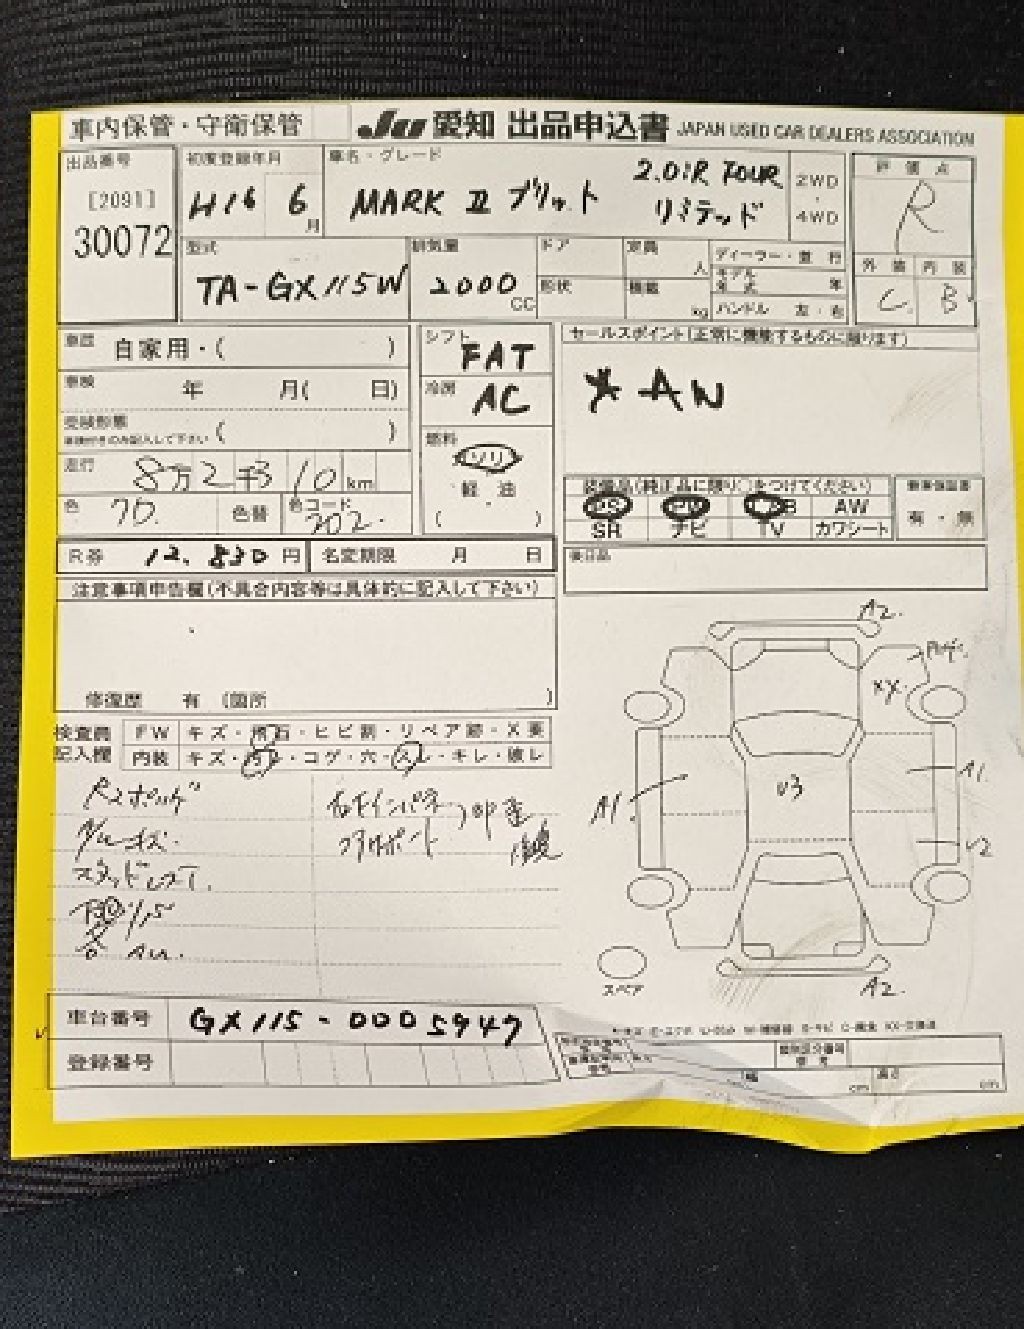 車内保管・守衛保管
JU 愛知 出品申込書 JAPAN USED CAR DEALERS ASSOCIATION
出品番号
[2091]
30072
初度登録年月
H16 6月
車名・グレード
MARK II ブリット
2.0iR TOUR
リミテッド
2WD
・
4WD
評価点
R
外装 内装
C B
型式
TA-GX115W
排気量
2000 CC
ドア
形状
定員 人
積載 kg
ディーラー・並行
モデル年式 年
ハンドル 左・右
車歴 自家用・( )
車検 年 月( 日)
受検形態 ( )
走行 8万2千310km
色
色替
色コード 202
シフト FAT
冷房 AC
燃料
ガソリン
軽油
( ・ )
セールスポイント(正常に機能するものに限ります)
*AN
装備品(純正品に限り○をつけてください)
PS PW エアB AW
SR ナビ TV カワシート
新車保証書
有・無
R券 12,830円
名変期限 月 日
後日品
注意事項申告欄(不具合内容等は具体的に記入して下さい)
修復歴 有 (箇所 )
検査員記入欄
FW キズ・飛石・ヒビ割・リペア跡・X要
内装 キズ・汚レ・コゲ・穴・スレ・キレ・破レ
スタッドレスT.
A2
XX
A1
A1
U3
U2
A2
スペア
車台番号 GX115-0005947
登録番号
幅 cm
長さ cm